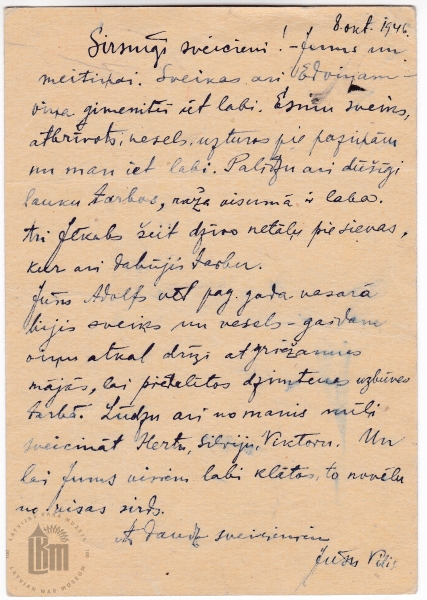 8. okt. 1946.
Sirsnīgi sveicieni! - Jums un
meitiņai. Sveikas arī Edviņam -
viņa ģimenītei iet labi. Esmu sveiks,
atbrīvots, vesels, uzturos pie paziņām
un man iet labi. Palīdzu arī dūšīgi
lauku darbos, raža visumā ir laba.
Arī Jēkabs šeit dzīvo netāļu pie sievas,
kur arī dabūjis darbu.
Jūsu Adolfs vēl pag. gada vasarā
bijis sveiks un vesels - gaidam
viņu atkal drīzi atgriežamies
mājās, lai piedalītos dzimtenes uzbūves
darbā. Lūdzu arī no manis mīļi
sveicināt Hertu, Silviju, Viktoru. Un
lai Jums visiem labi klātos, to novēlu
no visas sirds.
Ar daudz sveicieniem
Jūsu
LATVIJAS KARA MUZEJS
LKM
LATVIAN WAR MUSEUM